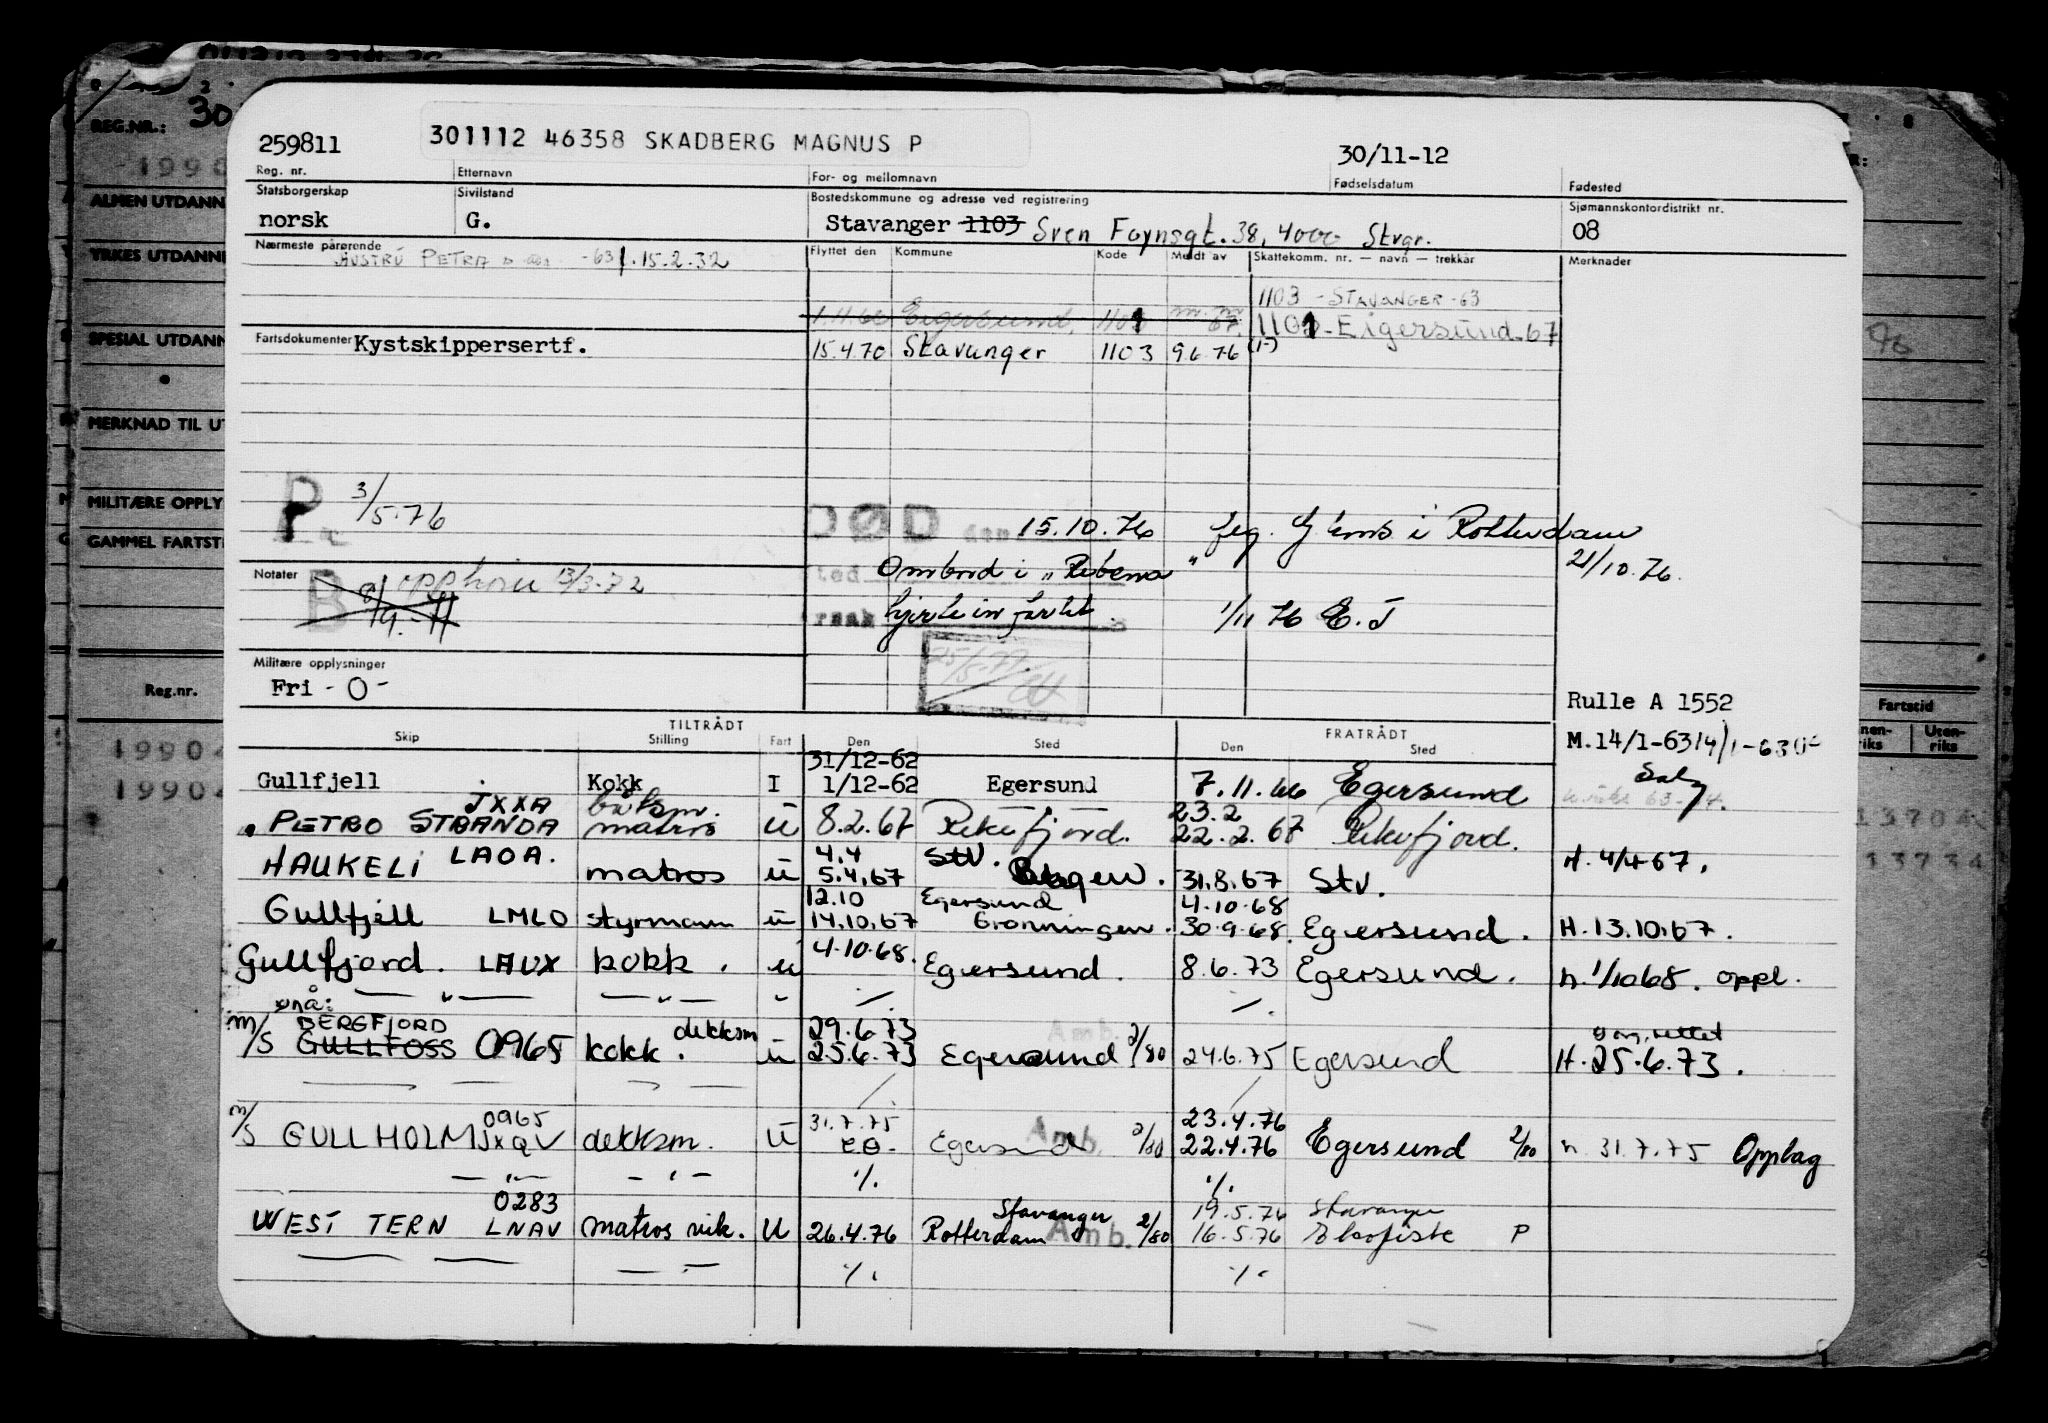 REG.NR.: 30
259811 301112 46358 SKADBERG MAGNUS P 30/11-12
Reg. nr. Etternavn For- og mellomnavn Fødselsdatum Fødested
Statsborgerskap Sivilstand Bostedskommune og adresse ved registrering Sjømannskontordistrikt nr.
norsk G. Stavanger 1103 Sven Foynsgt. 38, 4000 Stvgr. 08
Nærmeste pårørende Flyttet den Kommune Kode Meldt av Skattekomm. nr. — navn — trekkår Merknader
HUSTRU PETRA -63 f. 15.2.32
1103 - STAVANGER - 63
1.11.66 Eigersund 1101 67. 1101 - Eigersund - 67
Fartsdokumenter Kystskippersertf. 15.4.70 Stavanger 1103 9.6.76 (1-)
P 3/5.76
DØD den 15.10.76 i Rotterdam
21/10.76.
Notater B opphøir 13/3.72
sted Ombord i "
8/9.-71
rsak hjerteinfarkt. 1/11 76 E.J
Militære opplysninger
Fri - 0 -
Rulle A 1552
TILTRÅDT FRATRÅDT
Skip Stilling Fart Den Sted Den Sted
M.14/1-63 14/1-63
31/12-62
Gullfjell Kokk I 1/12-62 Egersund 7.11.66 Egersund
JXXA båtsm. 23.2
PETRO STRANDA matros U 8.2.67 Rekefjord. 22.2.67 Rekefjord.
HAUKELI LAOA. matros U 4.4 Stv. 31.8.67 Stv. H. 4/4-67.
5.4.67 Bergen.
12.10 Egersund 4.10.68
Gullfjell LMLO styrmann U 14.10.67 Gronningen. 30.9.68. Egersund. H. 13.10.67.
Gullfjord. LAUX kokk. U 4.10.68. Egersund. 8.6.73 Egersund. h. 1/10 68. oppl.
— " — — " — " ./. ./.
nå:
BERGFJORD dekksm 29.6.73 Amb.
m/s GULLFOSS 0965 kokk. U 25.6.73 Egersund 2/80 24.6.75 Egersund H. 25.6.73.
m/s 0965 31.7.75 Amb. 23.4.76
GULLHOLM JXQV dekksm. U Egersund 2/80 22.4.76 Egersund 2/80 h. 31.7.75 Oppbag
— " — — " — ./. ./.
0283 Stavanger 19.5.76 Stavanger
WEST TERN LNAV matros vik. U 26.4.76 Rotterdam Amb. 2/80 16.5.76 Ekofiske P
./. ./.
ALMEN UTDANN
YRKES UTDANNE
SPESIAL UTDANN
MERKNAD TIL UT
MILITÆRE OPPLY
GAMMEL FARTSTI
Reg.nr.
19904
19904
Fartstid
Uten-
riks
13704
13734